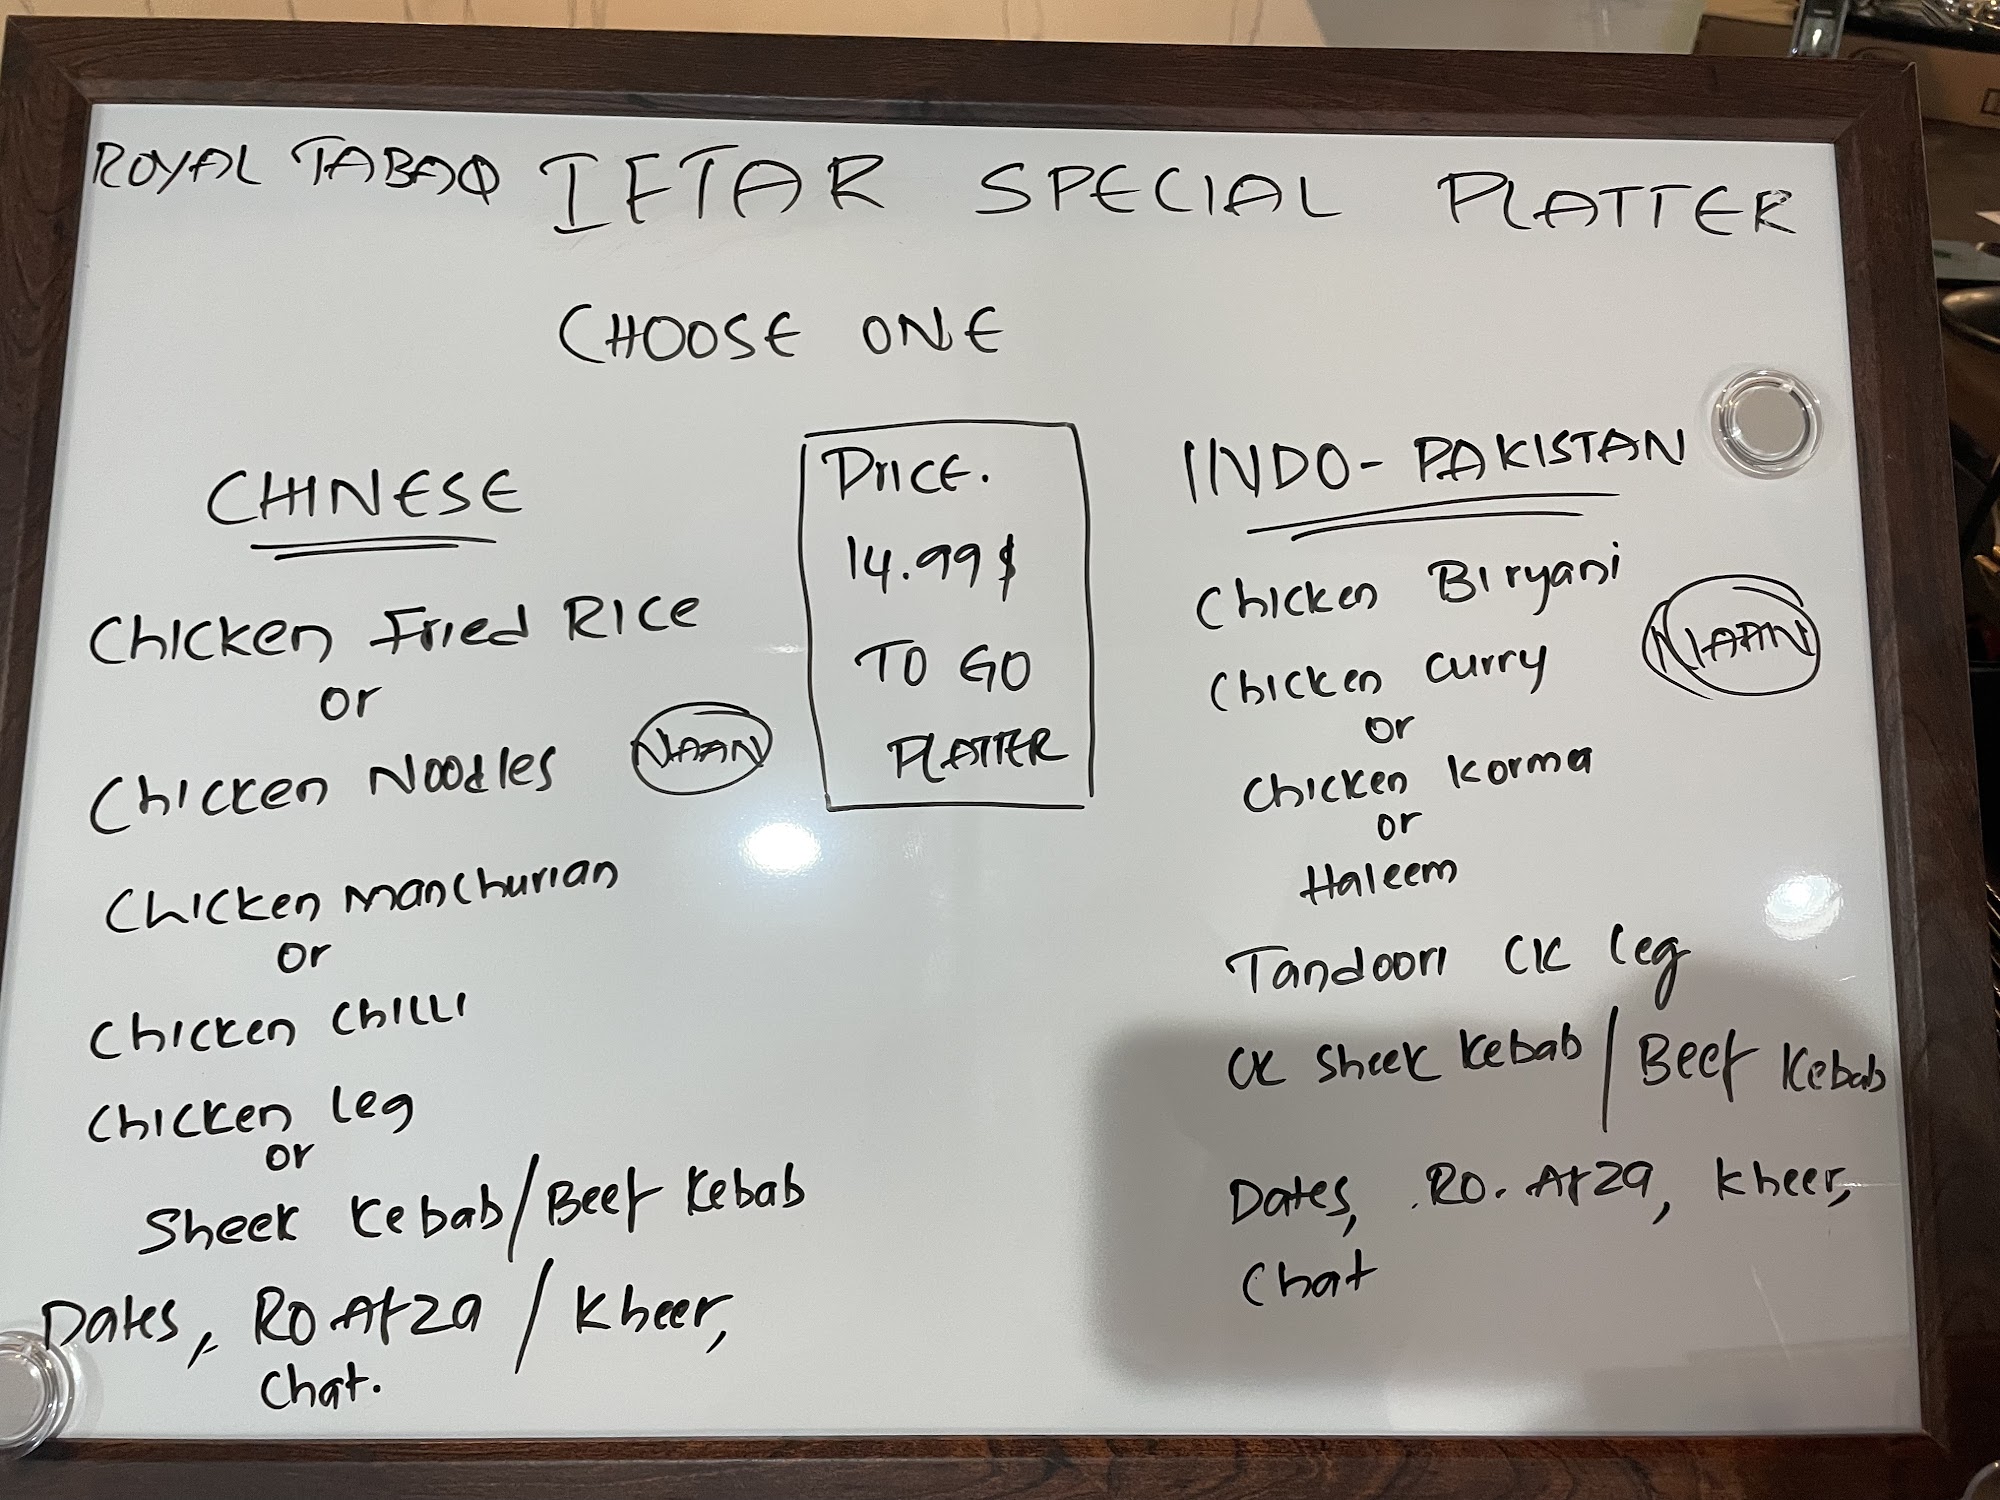 ROYAL TABAQ IFTAR SPECIAL PLATTER
CHOOSE ONE
CHINESE
Chicken Fried Rice
or
Chicken Noodles
NAAN
Chicken Manchurian
or
Chicken Chilli
Chicken Leg
or
Sheek Kebab/Beef Kebab
Dates, RO Afza / Kheer,
Chat.
Price.
14.99$
TO GO
PLATTER
INDO-PAKISTAN
Chicken Biryani
NAAN
Chicken Curry
or
Chicken Korma
or
Haleem
Tandoori CK Leg
CK Sheek Kebab/Beef Kebab
Dates, RO. Afza, Kheer,
Chat